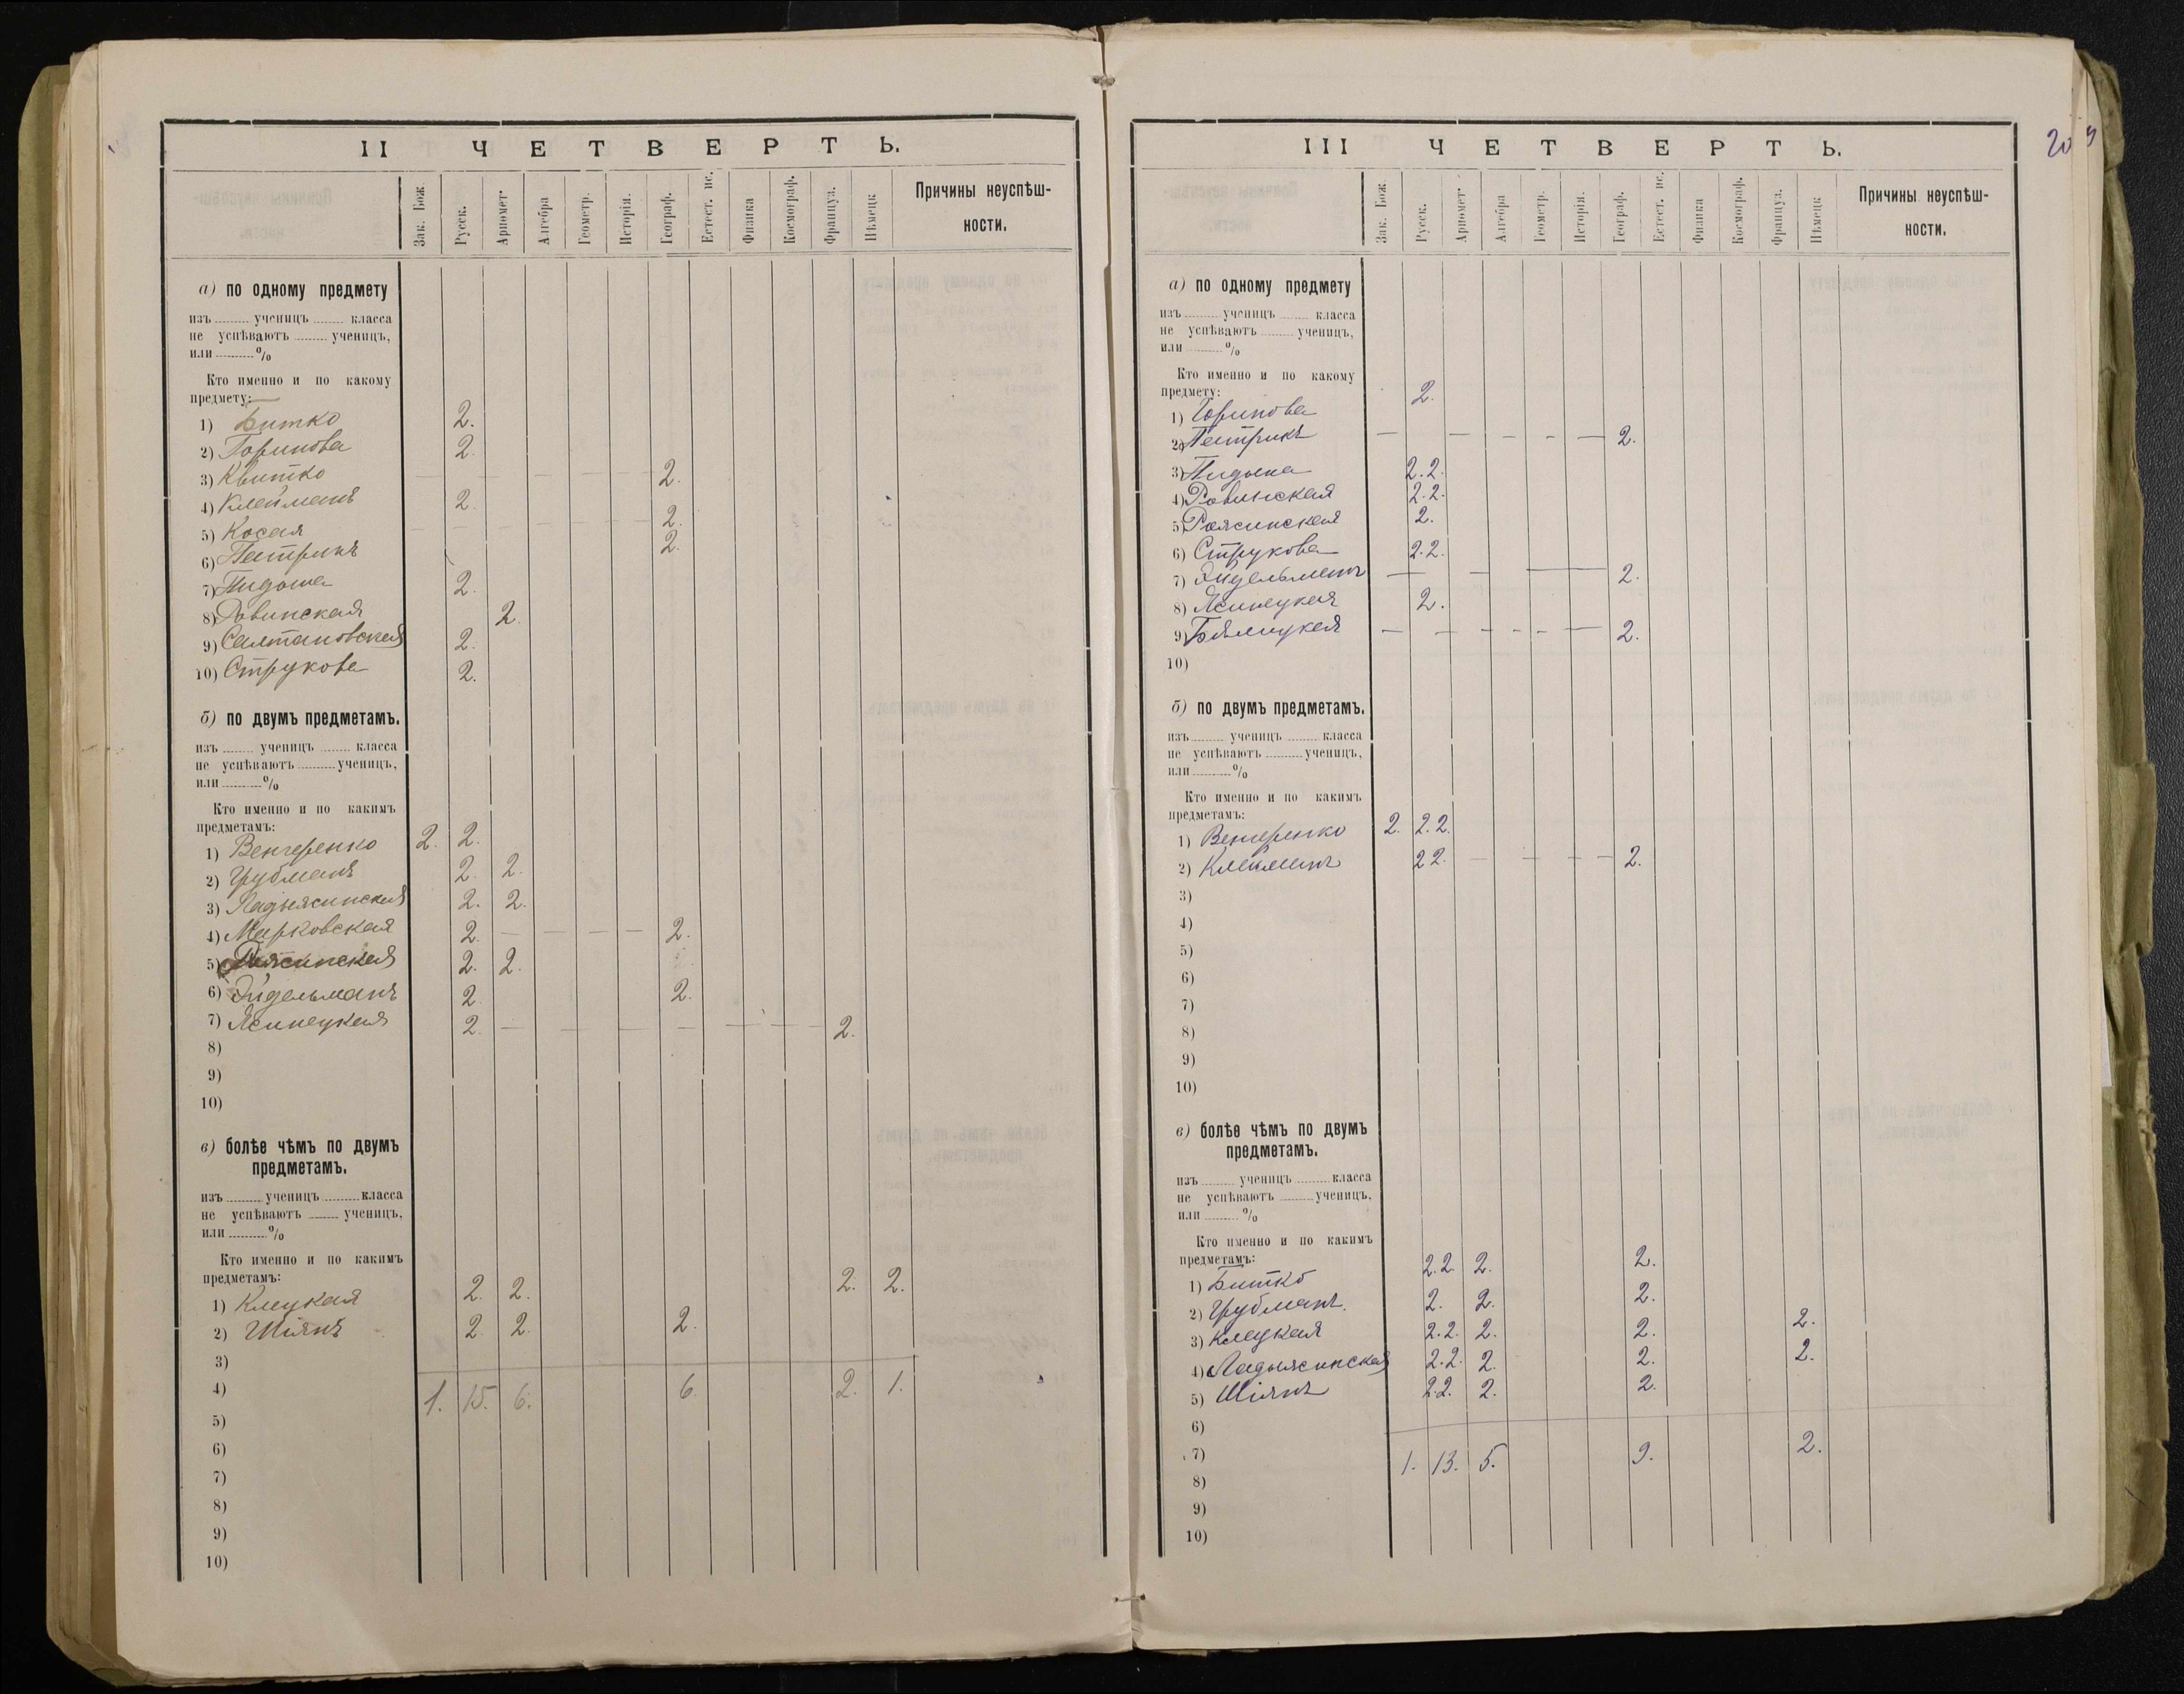 II ЧЕТВЕРТЬ.
Зак. Бож. Русск. Ариѳмет. Алгебра Геометр. Исторія. Географ. Естест. ис. Физика Космограф. Француз. Нѣмецк Причины неуспѣш-
ности.
а) по одному предмету
изъ ученицъ класса
не успѣваютъ ученицъ,
или %
Кто именно и по какому
предмету:
1) Битко 2.
2) Горинова 2.
3) Квитко 2.
4) Клейманъ 2.
5) Косая 2.
6) Петрикъ 2.
7) Пидоша 2.
8) Ровинская 2.
9) Салтановская 2.
10) Струкова 2.
б) по двумъ предметамъ.
изъ ученицъ класса
не успѣваютъ ученицъ,
или %
Кто именно и по какимъ
предметамъ:
1) Венгеренко 2. 2.
2) Грубманъ 2. 2.
3) Ладыжинская 2. 2.
4) Марковская 2. 2.
5) 2. 2.
6) Эйдельманъ 2. 2.
7) Ясинецкая 2. 2.
8)
9)
10)
в) болѣе чѣмъ по двумъ
предметамъ.
изъ ученицъ класса
не успѣваютъ ученицъ,
или %
Кто именно и по какимъ
предметамъ:
1) Клецкая 2. 2. 2. 2.
2) Шіянъ 2. 2. 2.
3)
4) 1. 15. 6. 6. 2. 1.
5)
6)
7)
8)
9)
10)
III ЧЕТВЕРТЬ.
Зак. Бож. Русск. Ариѳмет. Алгебра Геометр. Исторія. Географ. Естест. ис. Физика Космограф. Француз. Нѣмецк Причины неуспѣш-
ности.
а) по одному предмету
изъ ученицъ класса
не успѣваютъ ученицъ,
или %
Кто именно и по какому
предмету:
1) Горинова 2.
2) Петрикъ 2.
3) Пидоша 2. 2.
4) Ровинская 2. 2.
5) 2.
6) Струкова 2. 2.
7) Эйдельманъ 2.
8) Ясинецкая 2.
9) Бялицкая 2.
10)
б) по двумъ предметамъ.
изъ ученицъ класса
не успѣваютъ ученицъ,
или %
Кто именно и по какимъ
предметамъ:
1) Венгеренко 2. 2. 2.
2) Клейманъ 2 2. 2.
3)
4)
5)
6)
7)
8)
9)
10)
в) болѣе чѣмъ по двумъ
предметамъ.
изъ ученицъ класса
не успѣваютъ ученицъ,
или %
Кто именно и по какимъ
предметамъ:
1) Битко 2. 2. 2. 2.
2) Грубманъ. 2. 2. 2.
3) Клецкая 2. 2. 2. 2. 2.
4) Ладыжинская 2. 2. 2. 2. 2.
5) Шіянъ 2. 2. 2. 2.
6)
7) 1. 13. 5. 9. 2.
8)
9)
10)